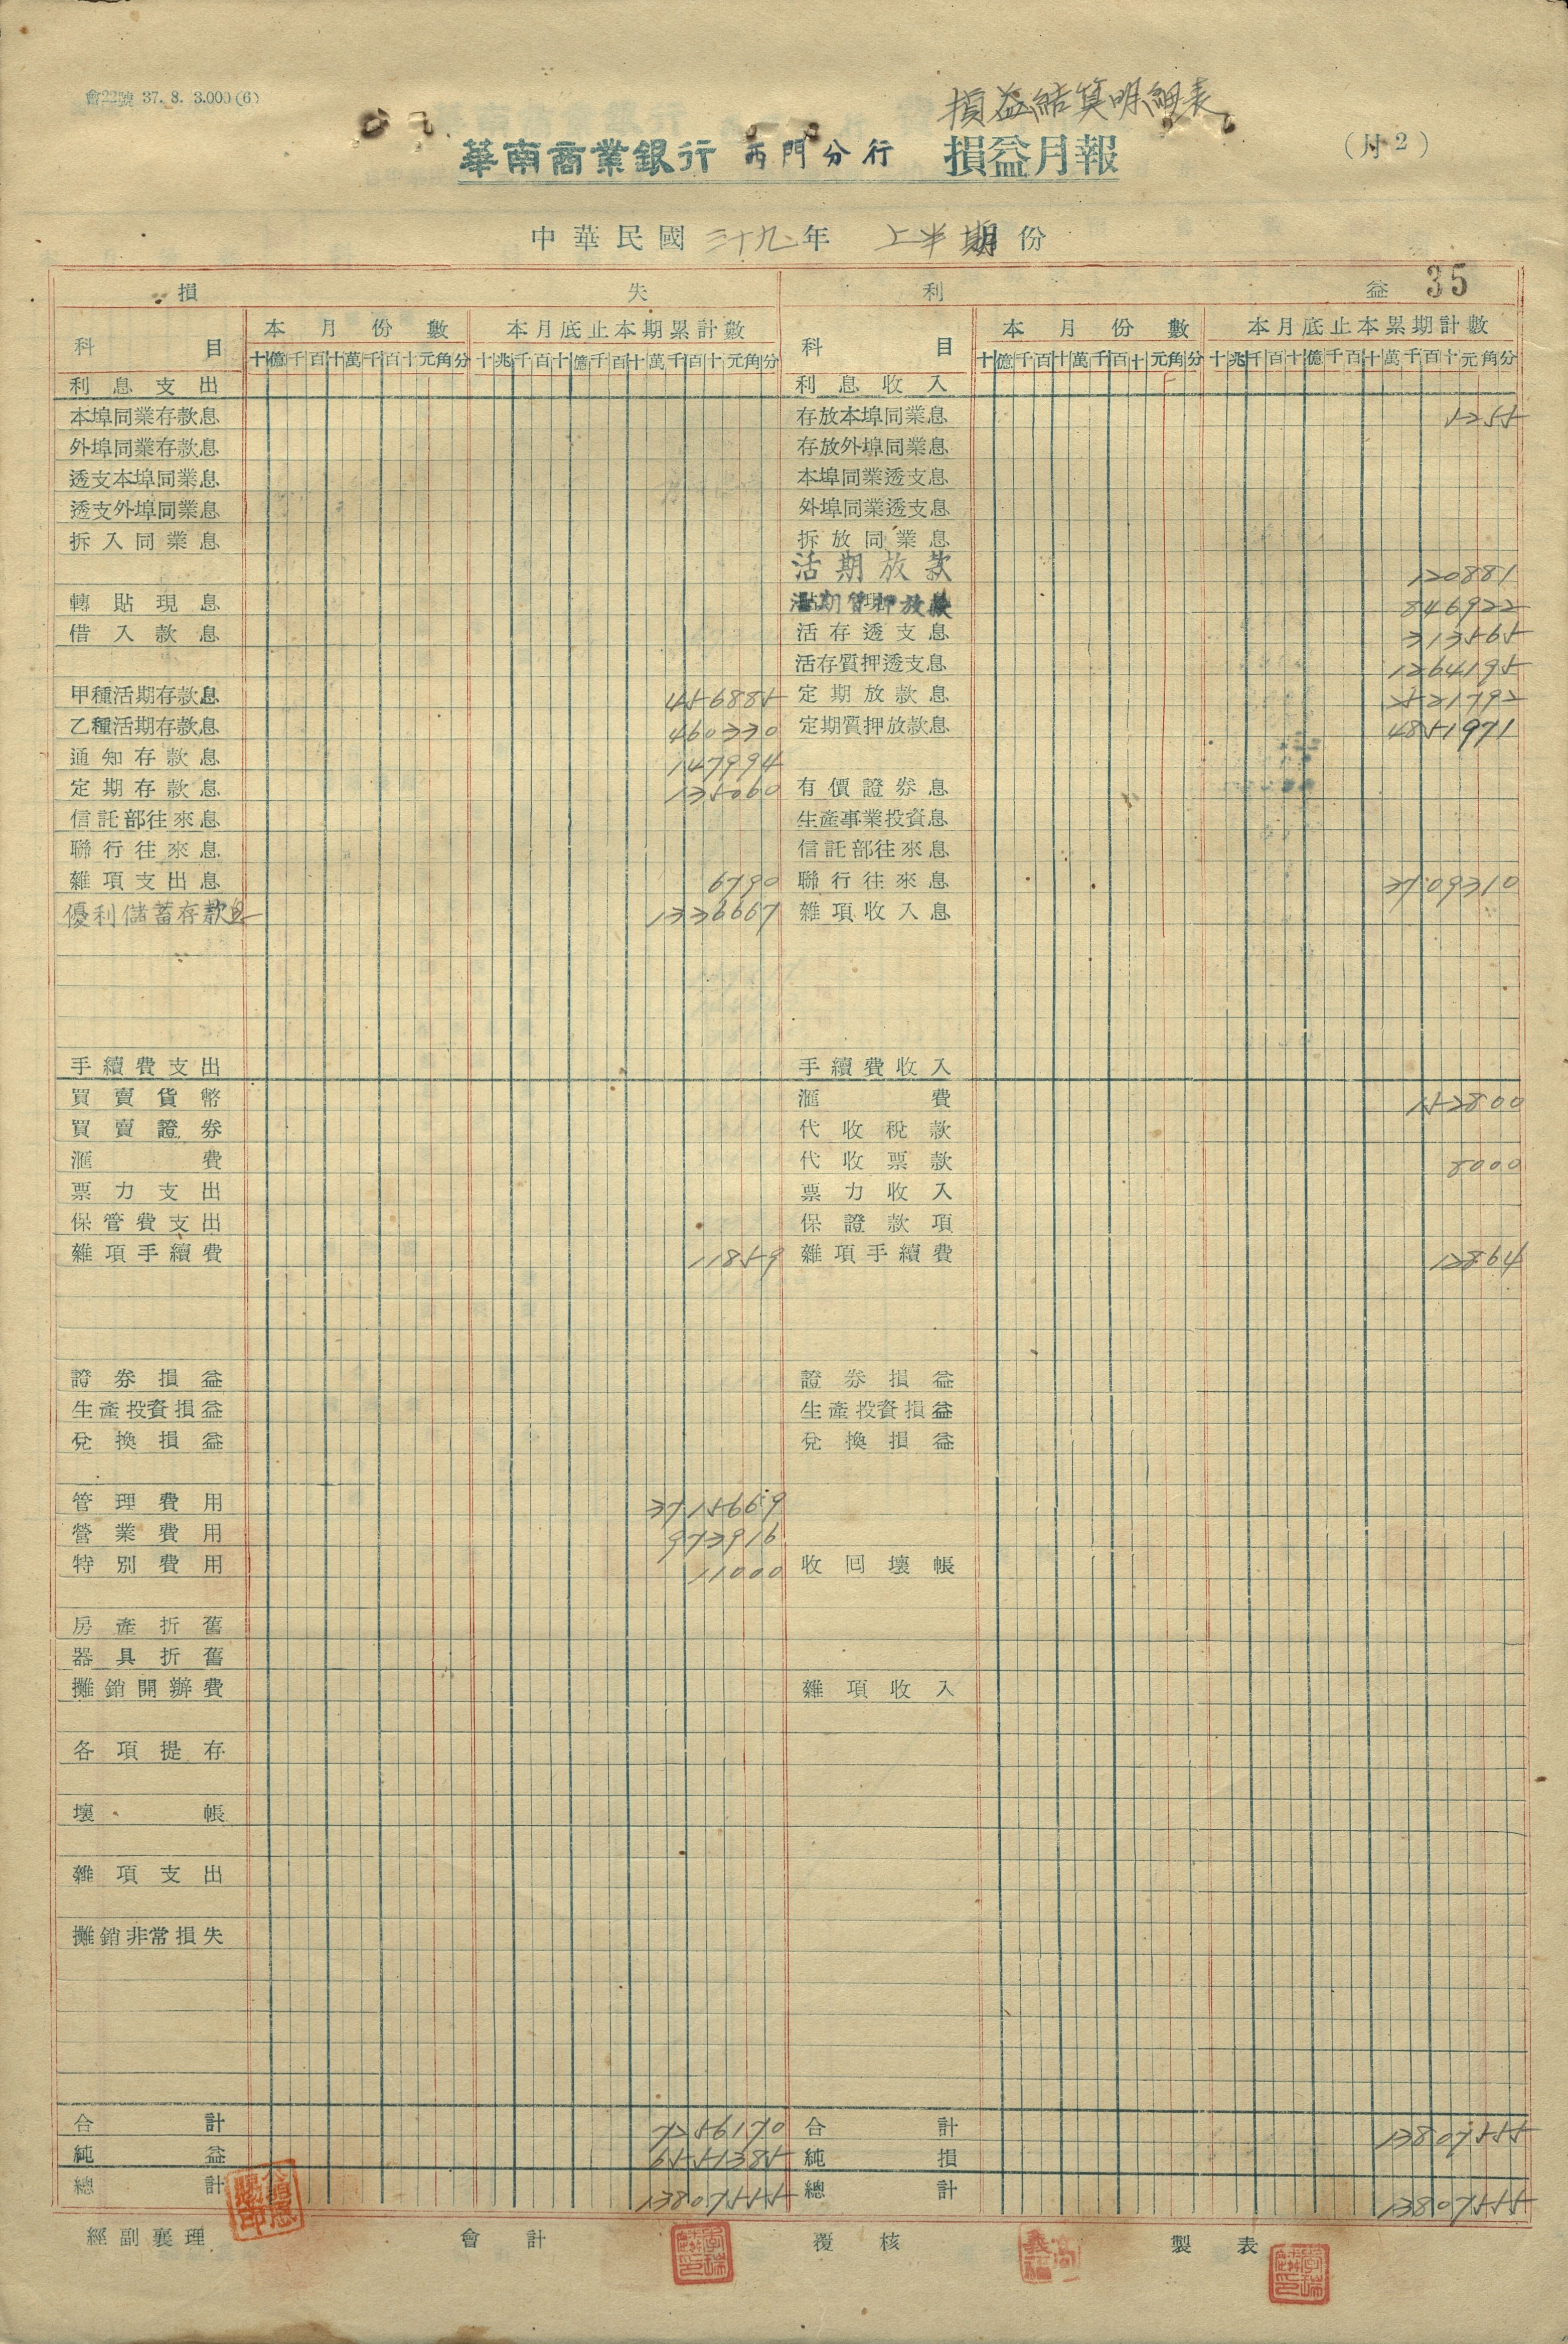 會22號 37. 8. 3.000(6)
損益結算明細表
華南商業銀行 西門分行 損益月報
(月2)
中華民國三十九年 上半期份
35
損 失 利 益
科目 本月份數 本月底止本期累計數 科目 本月份數 本月底止本累期計數
十億千百十萬千百十元角分 十兆千百十億千百十萬千百十元角分 十億千百十萬千百十元角分 十兆千百十億千百十萬千百十元角分
利息支出 利息收入
本埠同業存款息 存放本埠同業息 5255
外埠同業存款息 存放外埠同業息
透支本埠同業息 本埠同業透支息
透支外埠同業息 外埠同業透支息
拆入同業息 拆放同業息
活期放款 120881
轉貼現息 活期質押放款 846922
借入款息 活存透支息 313565
活存質押透支息 1264195
甲種活期存款息 456885 定期放款息 2521792
乙種活期存款息 460330 定期質押放款息 4851971
通知存款息 147994
定期存款息 135060 有價證券息
信託部往來息 生產事業投資息
聯行往來息 信託部往來息
雜項支出息 6790 聯行往來息 3709310
優利儲蓄存款息 1336667 雜項收入息
手續費支出 手續費收入
買賣貨幣 滙費 152800
買賣證券 代收稅款
滙費 代收票款 8000
票力支出 票力收入
保管費支出 保證款項
雜項手續費 11859 雜項手續費 12864
證券損益 證券損益
生產投資損益 生產投資損益
兌換損益 兌換損益
管理費用 3715669
營業費用 973916
特別費用 11000 收回壞帳
房產折舊
器具折舊
攤銷開辦費 雜項收入
各項提存
壞帳
雜項支出
攤銷非常損失
合計 7256170 合計 13807555
純益 6551385 純損
總計 13807555 總計 13807555
經副襄理 會計 覆核 製表